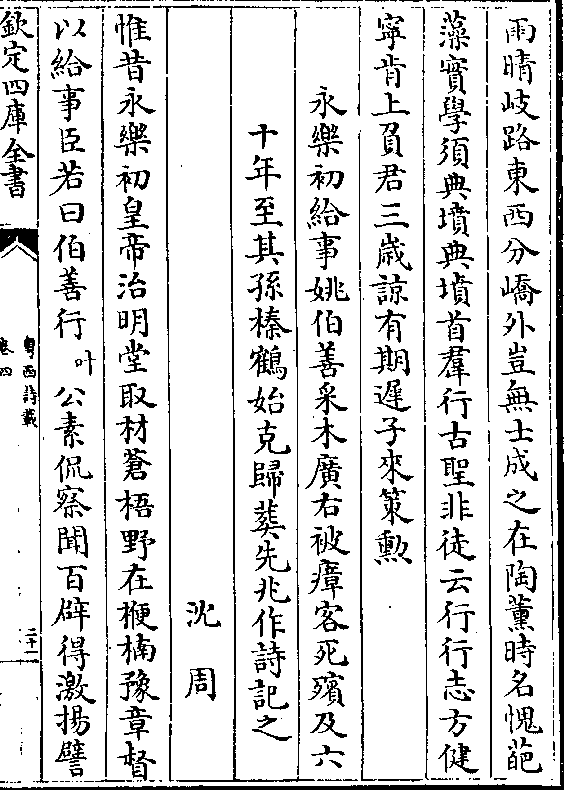 雨晴岐路東西分嶠外豈無士成之在陶薰時名愧葩
藻實學須典墳典墳首羣行古聖非徒云行行志方健
寧肯上負君三歲諒有期遲子來策勲
永樂初給事姚伯善采木廣右被瘴客死殯及六
十年至其孫榛鶴始克歸葬先兆作詩記之
沈周
惟昔永樂初皇帝治明堂取材蒼梧野在楩楠豫章督
以給事臣若曰伯善行叶公素侃察聞百辟得激揚譬
欽定四庫全書
粤西詩載
卷四
二十一